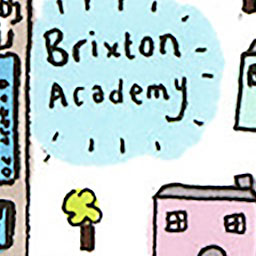 Brixton
Academy